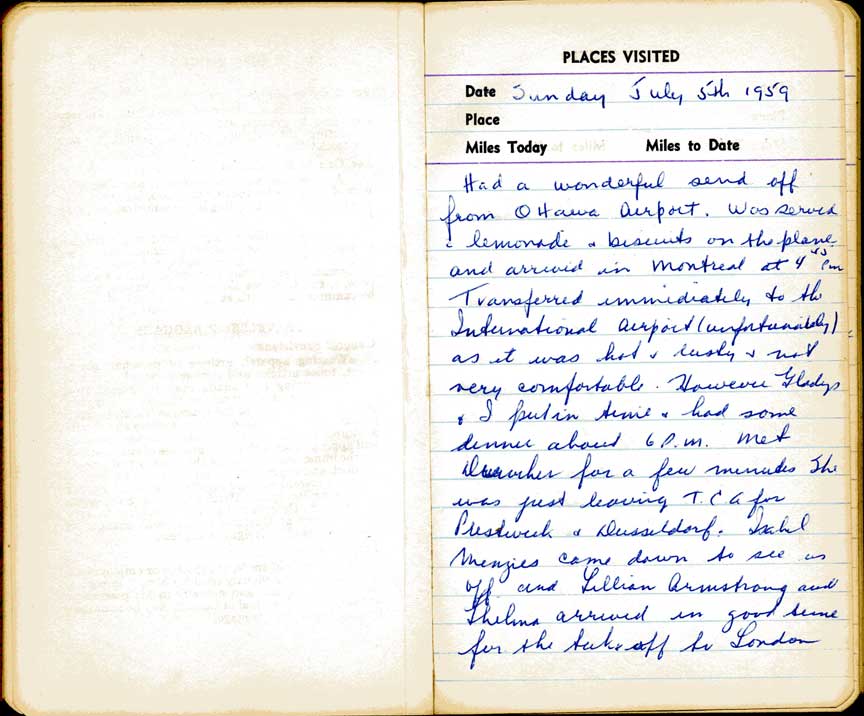 PLACES VISITED
Date Sunday July 5th 1959
Place
Miles Today Miles to Date
Had a wonderful send off
from Ottawa Airport. Was served
lemonade & biscuits on the plane
and arrived in Montreal at 4 pm
Transferred immediately to the
International Airport (unfortunately)
as it was hot & & not
very comfortable. However Gladys
& I put in time & had some
dinner about 6 P.M. Met
for a few minutes She
was just leaving T.C.A for
Prestwick & Dusseldorf. Isabel
Menzies came down to see us
off and Lillian Armstrong and
Thelma arrived in good time
for the take off to London